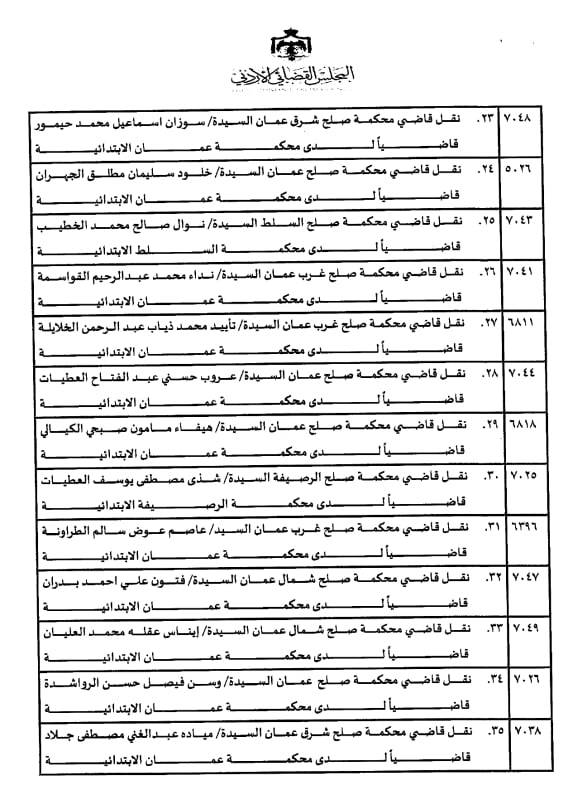 المجلس القضائي الأردني
٧٠٤٨ ٢٣. نقل قاضي محكمة صلح شرق عمان السيدة/ سوزان اسماعيل محمد حيمور
قاضياً لدى محكمة عمان الابتدائية
٥٠٢٦ ٢٤. نقل قاضي محكمة صلح عمان السيدة/ خلود سليمان مطلق الجهران
قاضياً لدى محكمة عمان الابتدائية
٧٠٤٣ ٢٥. نقل قاضي محكمة صلح السلط السيدة/ نوال صالح محمد الخطيب
قاضياً لدى محكمة السلط الابتدائية
٧٠٤١ ٢٦. نقل قاضي محكمة صلح غرب عمان السيدة/ نداء محمد عبدالرحيم القواسمة
قاضياً لدى محكمة عمان الابتدائية
٦٨١١ ٢٧. نقل قاضي محكمة صلح غرب عمان السيدة/ تأييد محمد ذياب عبد الرحمن الخلايلة
قاضياً لدى محكمة عمان الابتدائية
٧٠٤٤ ٢٨. نقل قاضي محكمة صلح عمان السيدة/ عروب حسني عبد الفتاح العطيات
قاضياً لدى محكمة عمان الابتدائية
٦٨١٨ ٢٩. نقل قاضي محكمة صلح عمان السيدة/ هيفاء مامون صبحي الكيالي
قاضياً لدى محكمة عمان الابتدائية
٧٠٢٥ ٣٠. نقل قاضي محكمة صلح الرصيفة السيدة/ شذى مصطفى يوسف العطيات
قاضياً لدى محكمة الرصيفة الابتدائية
٦٣٩٦ ٣١. نقل قاضي محكمة صلح غرب عمان السيد/ عاصم عوض سالم الطراونة
قاضياً لدى محكمة عمان الابتدائية
٧٠٤٧ ٣٢. نقل قاضي محكمة صلح شمال عمان السيدة/ فتون علي احمد بدران
قاضياً لدى محكمة عمان الابتدائية
٧٠٤٩ ٣٣. نقل قاضي محكمة صلح شمال عمان السيدة/ إيناس عقله محمد العليان
قاضياً لدى محكمة عمان الابتدائية
٧٠٢٦ ٣٤. نقل قاضي محكمة صلح عمان السيدة/ وسن فيصل حسن الرواشدة
قاضياً لدى محكمة عمان الابتدائية
٧٠٣٨ ٣٥. نقل قاضي محكمة صلح شرق عمان السيدة/ مياده عبدالغني مصطفى جلاد
قاضياً لدى محكمة عمان الابتدائية